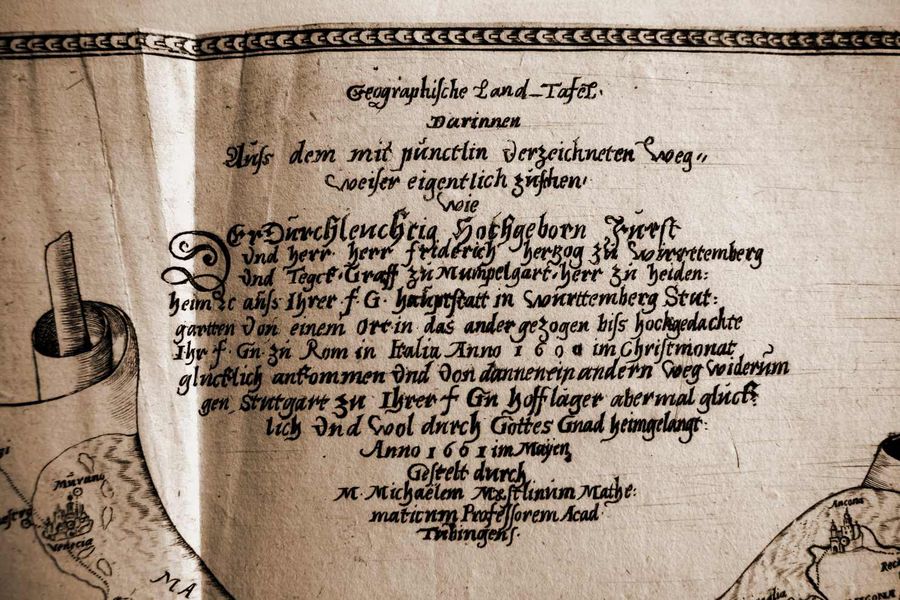 Geographische Land-Tafel.
Darinnen
Auss dem mit punctlin verzeichneten Weg„
weiser eigentlich zusehen.
wie
Der Durchleuchtig Hochgeborn Furst
vnd herr herr friderich herzog zu Württemberg
vnd Tegck. Graff zu Mumpelgart. herr zu heiden:
heim ꝛc auss Ihrer f. G. hauptstatt in Württemberg Stut:
gartten von einem Ort in das ander gezogen biss hochgedachte
Ihr f. Gn. zu Rom in Italia Anno 1600 im Christmonat
glucklich ankommen vnd von dannen ein andern weg widerum
gen Stutgart zu Ihrer f Gn hofflager abermal gluck:
lich vnd wol durch Gottes Gnad heimgelangt:
Anno 1661 im Mayen
Gestelt durch
M. Michaëlem Mestlinum Mathe:
maticum Professorem Acad
Tubingens.
Murano
Venecia
MA
Ancona